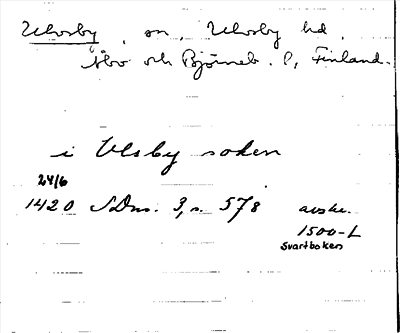 Ulvsby, sn, Ulvsby hd,
Åbo och Björneb. l, Finland.
i Vlsby soken
24/6
1420 SDns. 3, s. 578 avskr.
1500-t
Svartboken